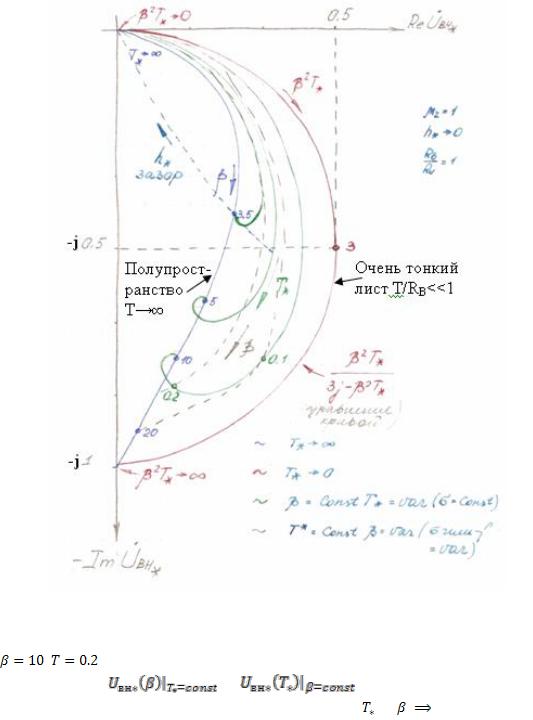 β²T*→0
0.5
Re U̇вн*
T*→∞
β²T*
μ₂=1
h*→0
Rв/Rн=1
h*
зазор
β
3.5
-j0.5
3
Полупрост-
ранство
T→∞
Очень тонкий
лист T/Rв<<1
5
T*
β
10
0.1
0.2
β²T*/(3j-β²T*)
(уравнение
кривой)
20
-j1
β²T*→∞
~ T*→∞
~ T*→0
~ β = Const T* = var (σ=Const)
~ T* = Const β = var (σ или f
= var)
-Im U̇вн*
β = 10 T = 0.2
Uвн*(β)|T*=const Uвн*(T*)|β=const
T* β ⟹